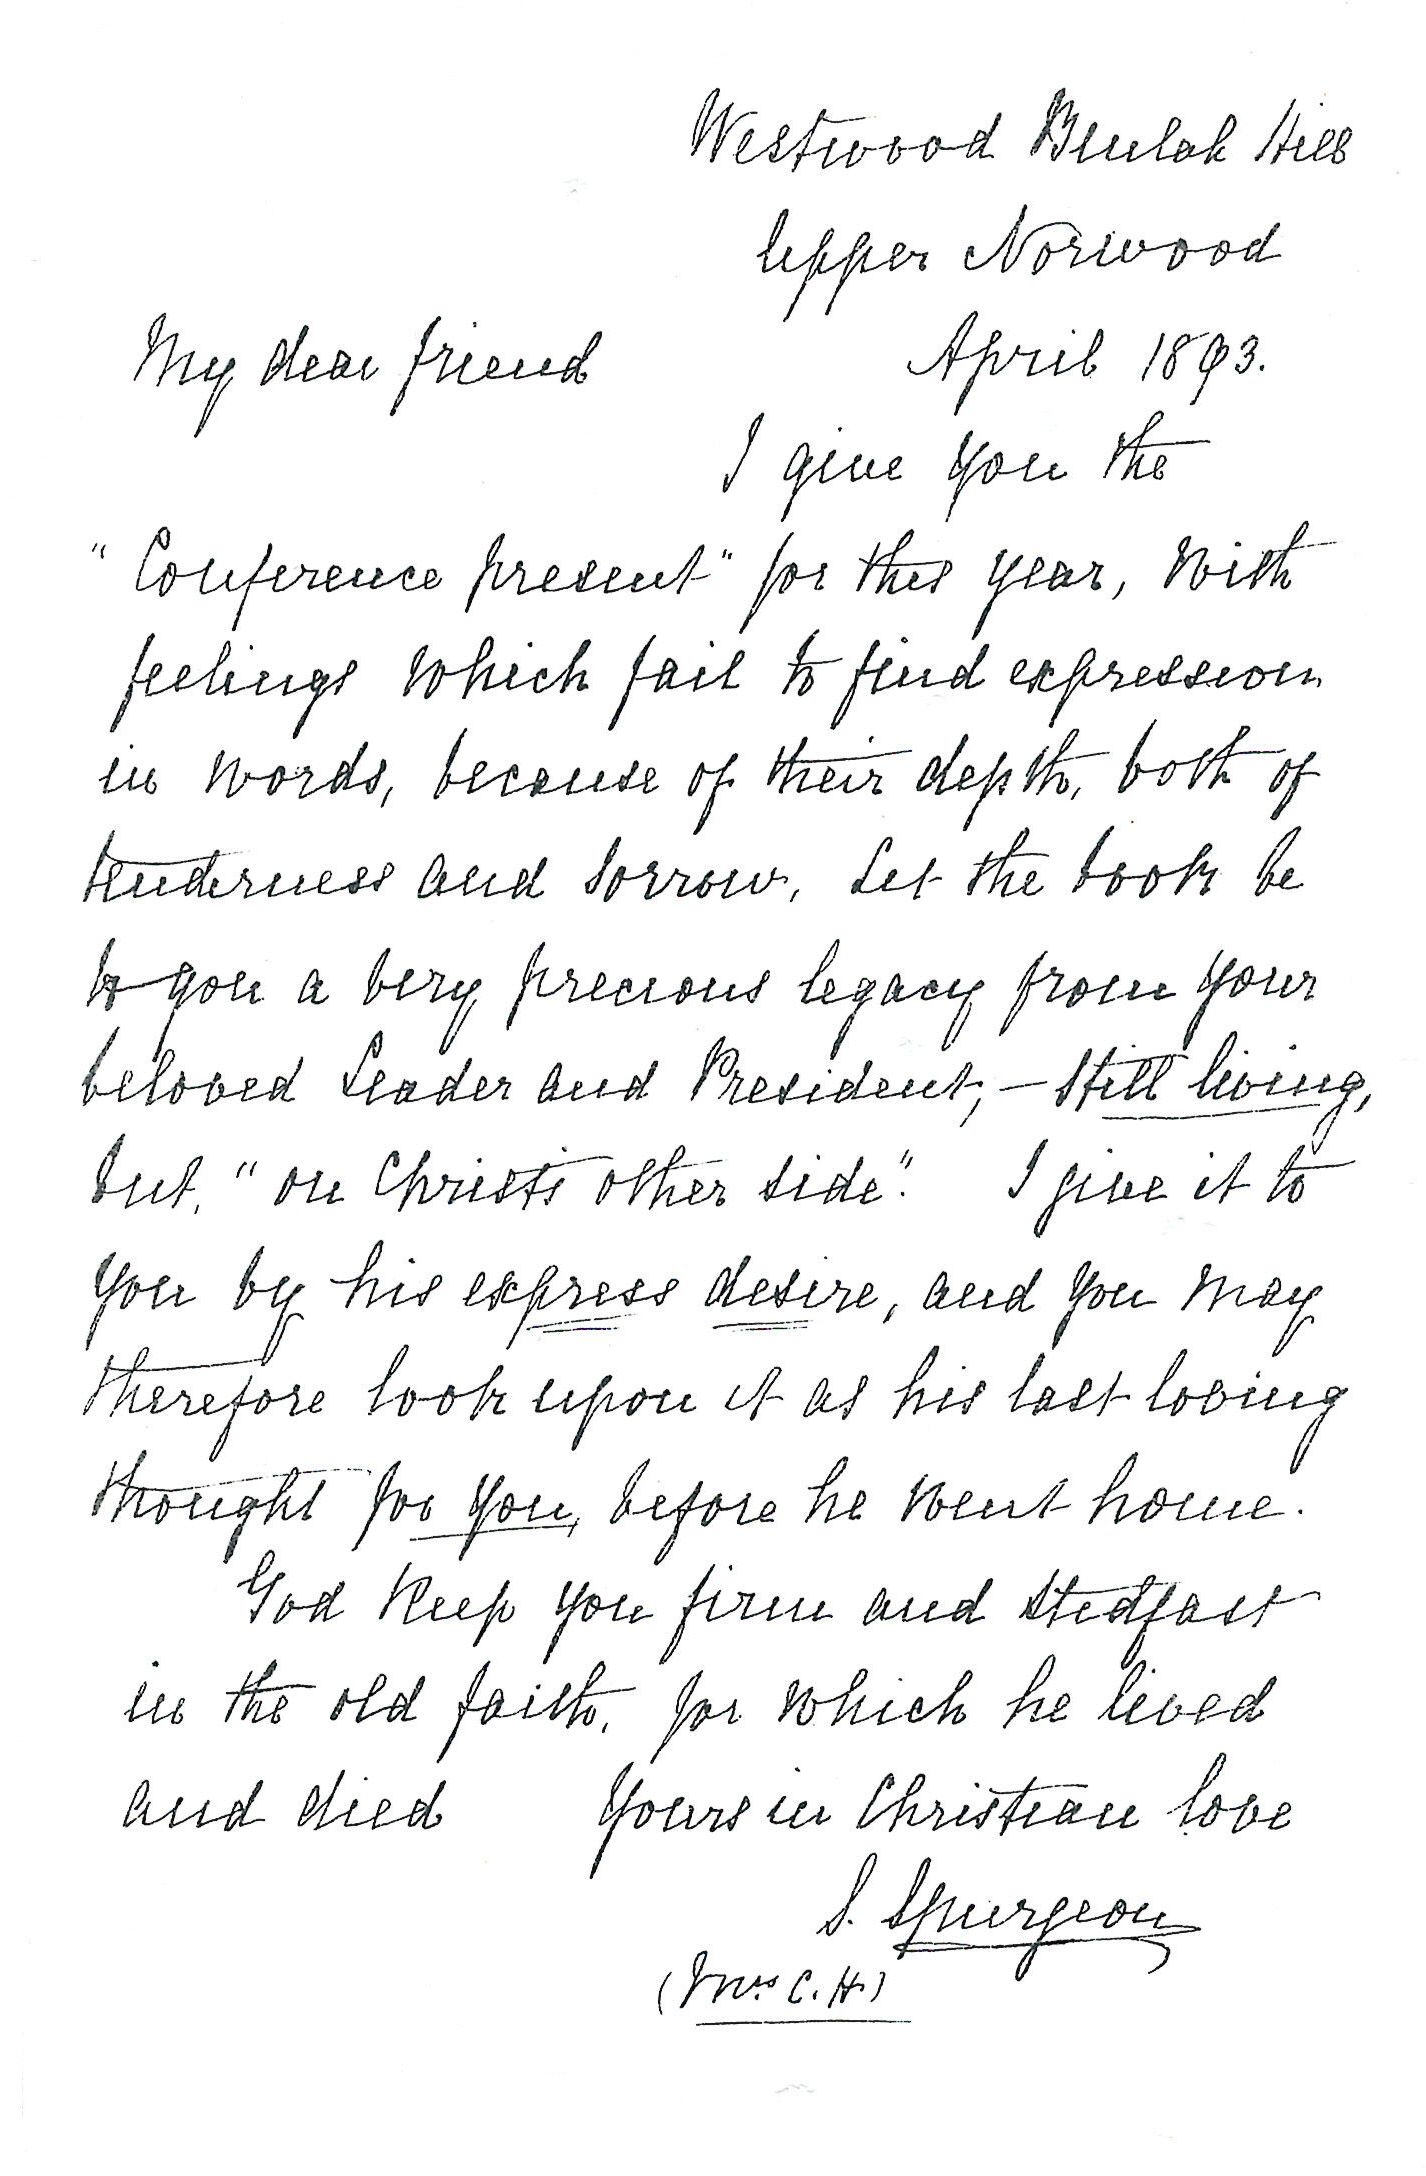 Westwood Beulah Hill
Upper Norwood
April 1893.
My dear friend
I give you the
"Conference present" for this year, with
feelings which fail to find expression
in words, because of their depth, both of
tenderness and sorrow. Let the book be
to you a very precious legacy from your
beloved Leader and President, – still living,
but, "on Christ's other side". I give it to
you by his express desire, and you may
therefore look upon it as his last loving
thought for you, before he went home.
God keep you firm and stedfast
in the old faith, for which he lived
and died Yours in Christian love
S. Spurgeon
(Mrs. C. H.)